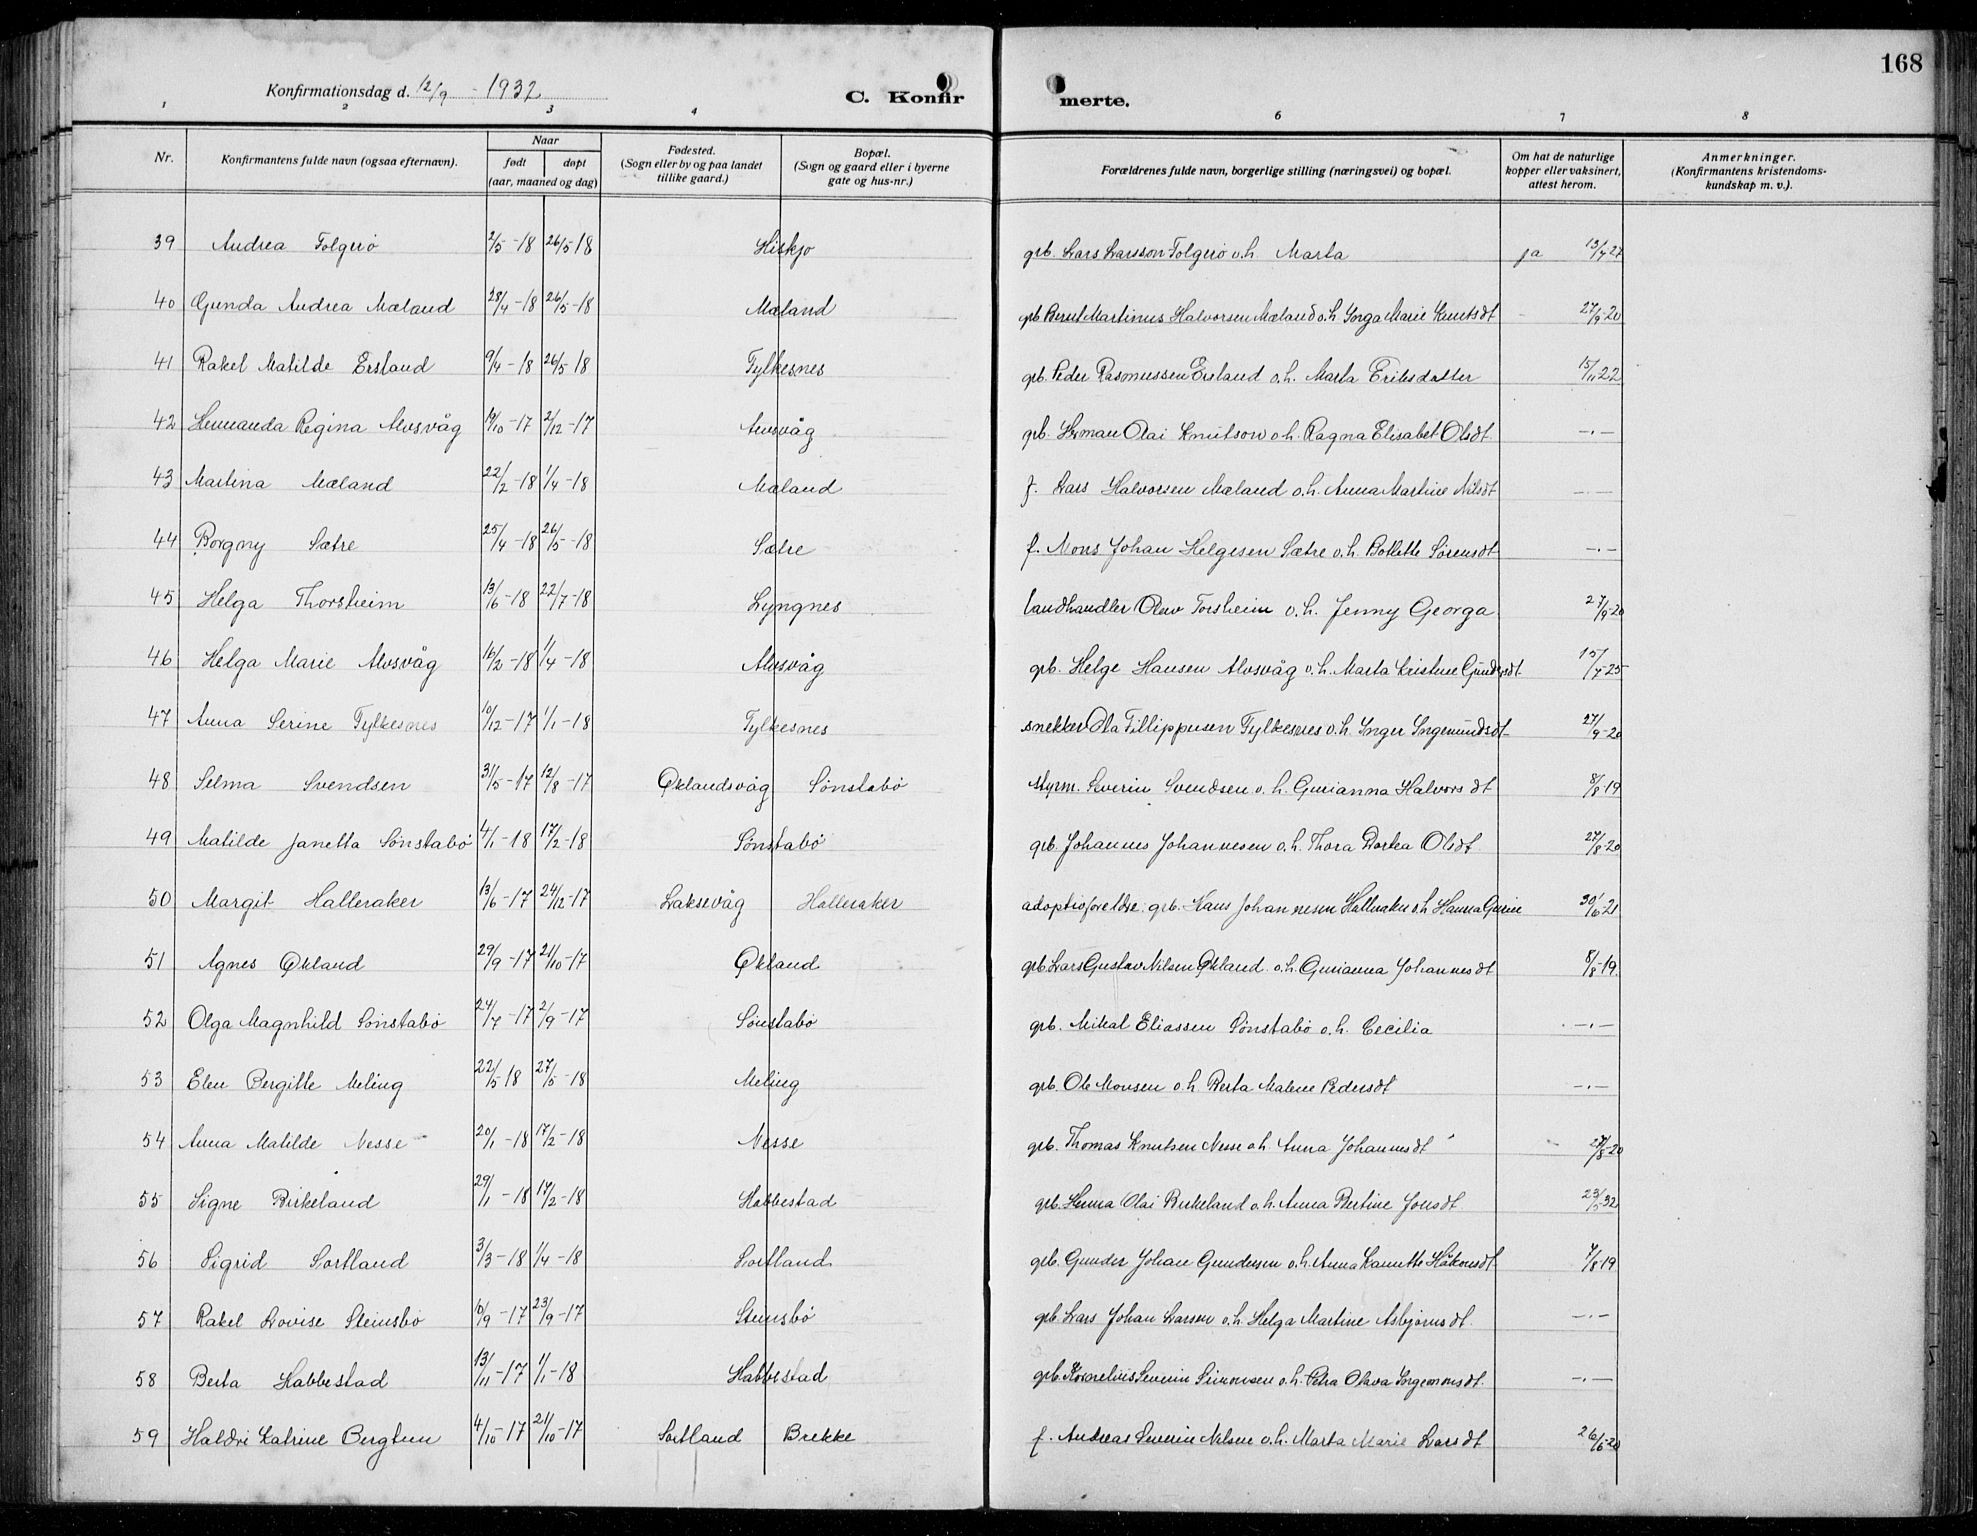 168
Konfirmationsdag d. 12/9 - 1932
C. Konfirmerte.
1 2 3 4 6 7 8
Nr. | Konfirmantens fulde navn (ogsaa efternavn). | Naar født døpt (aar, maaned og dag) | Fødested. (Sogn eller by og paa landet tillike gaard.) | Bopæl. (Sogn og gaard eller i byerne gate og hus-nr.) | Forældrenes fulde navn, borgerlige stilling (næringsvei) og bopæl. | Om hat de naturlige kopper eller vaksinert, attest herom. | Anmerkninger. (Konfirmantens kristendomskundskap m. v.).
39 Andrea Folgerö 2/5-18 26/5-18 Hiskjo grb. Lars Larsson Folgerö o.h. Marta ja 13/7-27
40 Gunda Andrea Mæland 28/4-18 26/5-18 Mæland grb. Bernt Martinus Halvorsen Mæland o.h. Inga Marie Knutsdt 27/9-20
41 Rakel Matilde Ersland 9/4-18 26/5-18 Fylkesnes grb. Peder Rasmussen Ersland o.h. Marta Eriksdatter 15/11 22
42 Hermanda Regina Alvsvåg 19/10-17 2/12-17 Alvsvåg grb. Herman Olai Knutson o.h. Ragna Elisabet Olsdt. -.-
43 Martina Mæland 22/2-18 1/4-18 Mæland f. Lars Halvorsen Mæland o.h. Anna Martine Nilsdt -.-
44 Borgny Sætre 25/4-18 26/5-18 Sætre f. Mons Johan Helgesen Sætre o.h. Bollette Sörensdt -.-
45 Helga Thorsheim 13/6-18 22/7-18 Lyngnes landhandler Olav Torsheim o.h. Jenny Georga 27/9-20
46 Helga Marie Alvsvåg 16/2-18 1/4-18 Alvsvåg grb. Helge Hansen Alvsvåg o.h. Marta Kristine Gundersdt 15/7-25
47 Anna Serine Fylkesnes 10/12-17 1/1-18 Fylkesnes snekker Ola Fillippusen Fylkesnes o.h. Inger Ingemundsdt 27/9-20
48 Selma Svendsen 31/5-17 12/8-17 Øklandsvåg Sönstabö styrm. Severin Svendsen o.h. Gurianna Halvorsdt 8/8-19
49 Matilde Janetta Sönstabö 4/1-18 17/2-18 Sönstabö grb. Johannes Johannesen o.h. Thora Dortea Olsdt 27/8-20
50 Margit Halleraker 13/6-17 24/12-17 Laksevåg Halleraker adoptivforeldre: grb. Hans Johannesen Halleraker o.h. Hanna Gurine 30/6-21
51 Agnes Økland 29/9-17 21/10-17 Økland grb. Lars Gustav Nilsen Økland o.h. Gurianna Johannesdt 8/8-19
52 Olga Magnhild Sönstabö 24/7-17 2/9-17 Sönstabö grb. Mikal Eliassen Sönstabö o.h. Cecilia -.-
53 Elen Bergitte Meling 22/5 18 27/5-18 Meling grb. Ole Monsen o.h. Berta Malene Pedersdt -.-
54 Anna Matilde Nesse 20/1-18 17/2-18 Nesse grb. Thomas Knutsen Nesse o.h. Anna Johannesdt 27/8-20
55 Signe Birkeland 29/1-18 17/2-18 Habbestad grb. Olai Birkeland o.h. Anna Bertine Jonsdt 23/5-32
56 Sigrid Sortland 3/3-18 1/4-18 Sortland grb. Gunder Johan Gundersen o.h. Anna Håkonsdt 7/8 19
57 Rakel Lovise Steinsbö 16/9-17 23/9-17 Steinsbö grb. Lars Johan Larsen o.h. Helga Martine Asbjörnsdt. -.-
58 Berta Habbestad 13/11-17 1/1-18 Habbestad grb. Kornelius Severin Simonsen o.h. Petra Olava Ingemonsdt. -.-
59 Haldri Katrine Bergtun 4/10-17 21/10-17 Sortland Brekke f. Andreas Severin Nilsen o.h. Marta Marie Larsdt 26/6-20